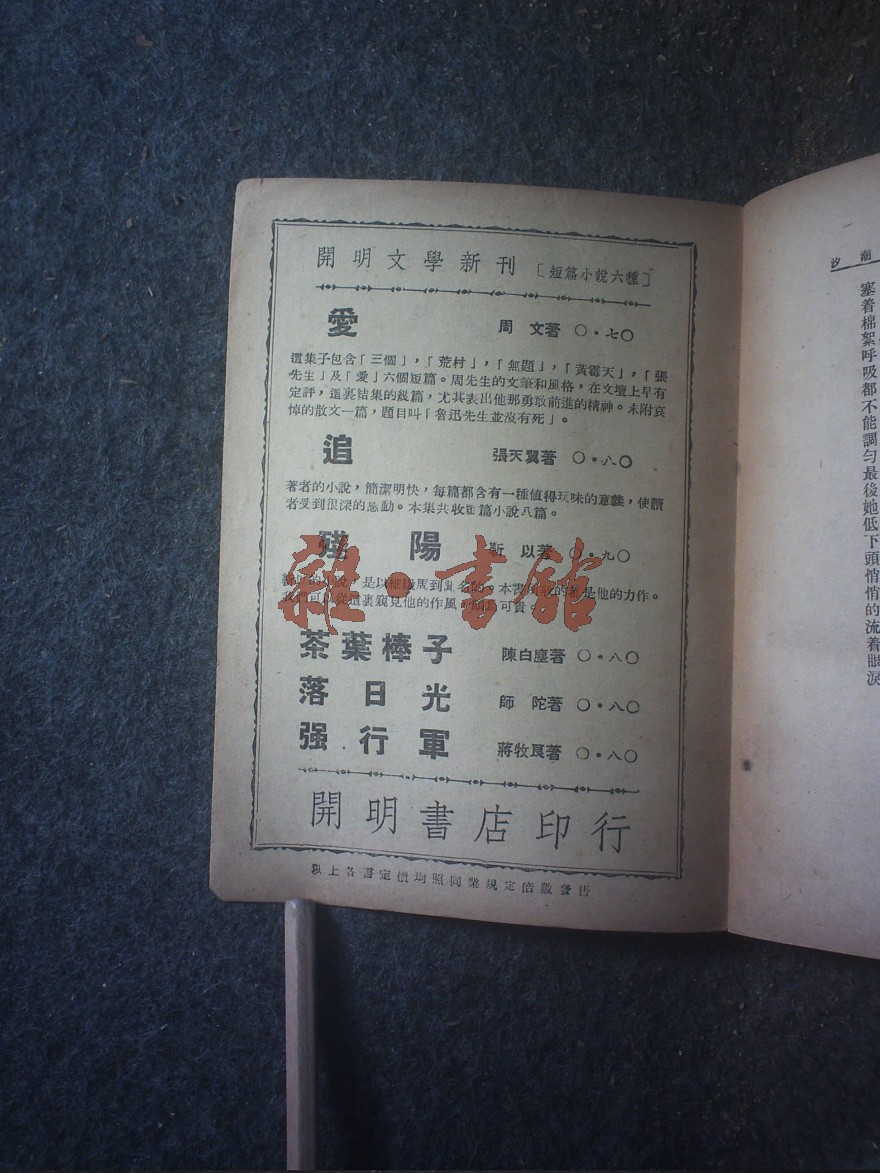 開明文學新刊〔短篇小說六種〕
愛 周文著 〇·七〇
這集子包含「三個」，「荒村」，「無題」，「黃霉天」，「張
先生」及「愛」六個短篇。周先生的文筆和風格，在文壇上早有
定評，這裏結集的幾篇，尤其表出他那勇敢前進的精神。末附哀
悼的散文一篇，題目叫「魯迅先生並沒有死」。
追 張天翼著 〇·八〇
著者的小說，簡潔明快，每篇都含有一種值得玩味的意義，使讀
者受到很深的感動。本集共收短篇小說八篇。
殘陽 靳以著 〇·九〇
的小說，是以細緻周到 名的。本書所收的 是他的力作。
我們可以從這裏窺見他的作風 可貴。
雜·書館
茶葉棒子 陳白塵著 〇·八〇
落日光 師陀著 〇·八〇
强行軍 蔣牧良著 〇·八〇
開明書店印行
以上各書定價均照同業規定倍數發售
汐潮
塞着棉絮呼吸都不能調勻最後她低下頭悄悄的流着眼淚